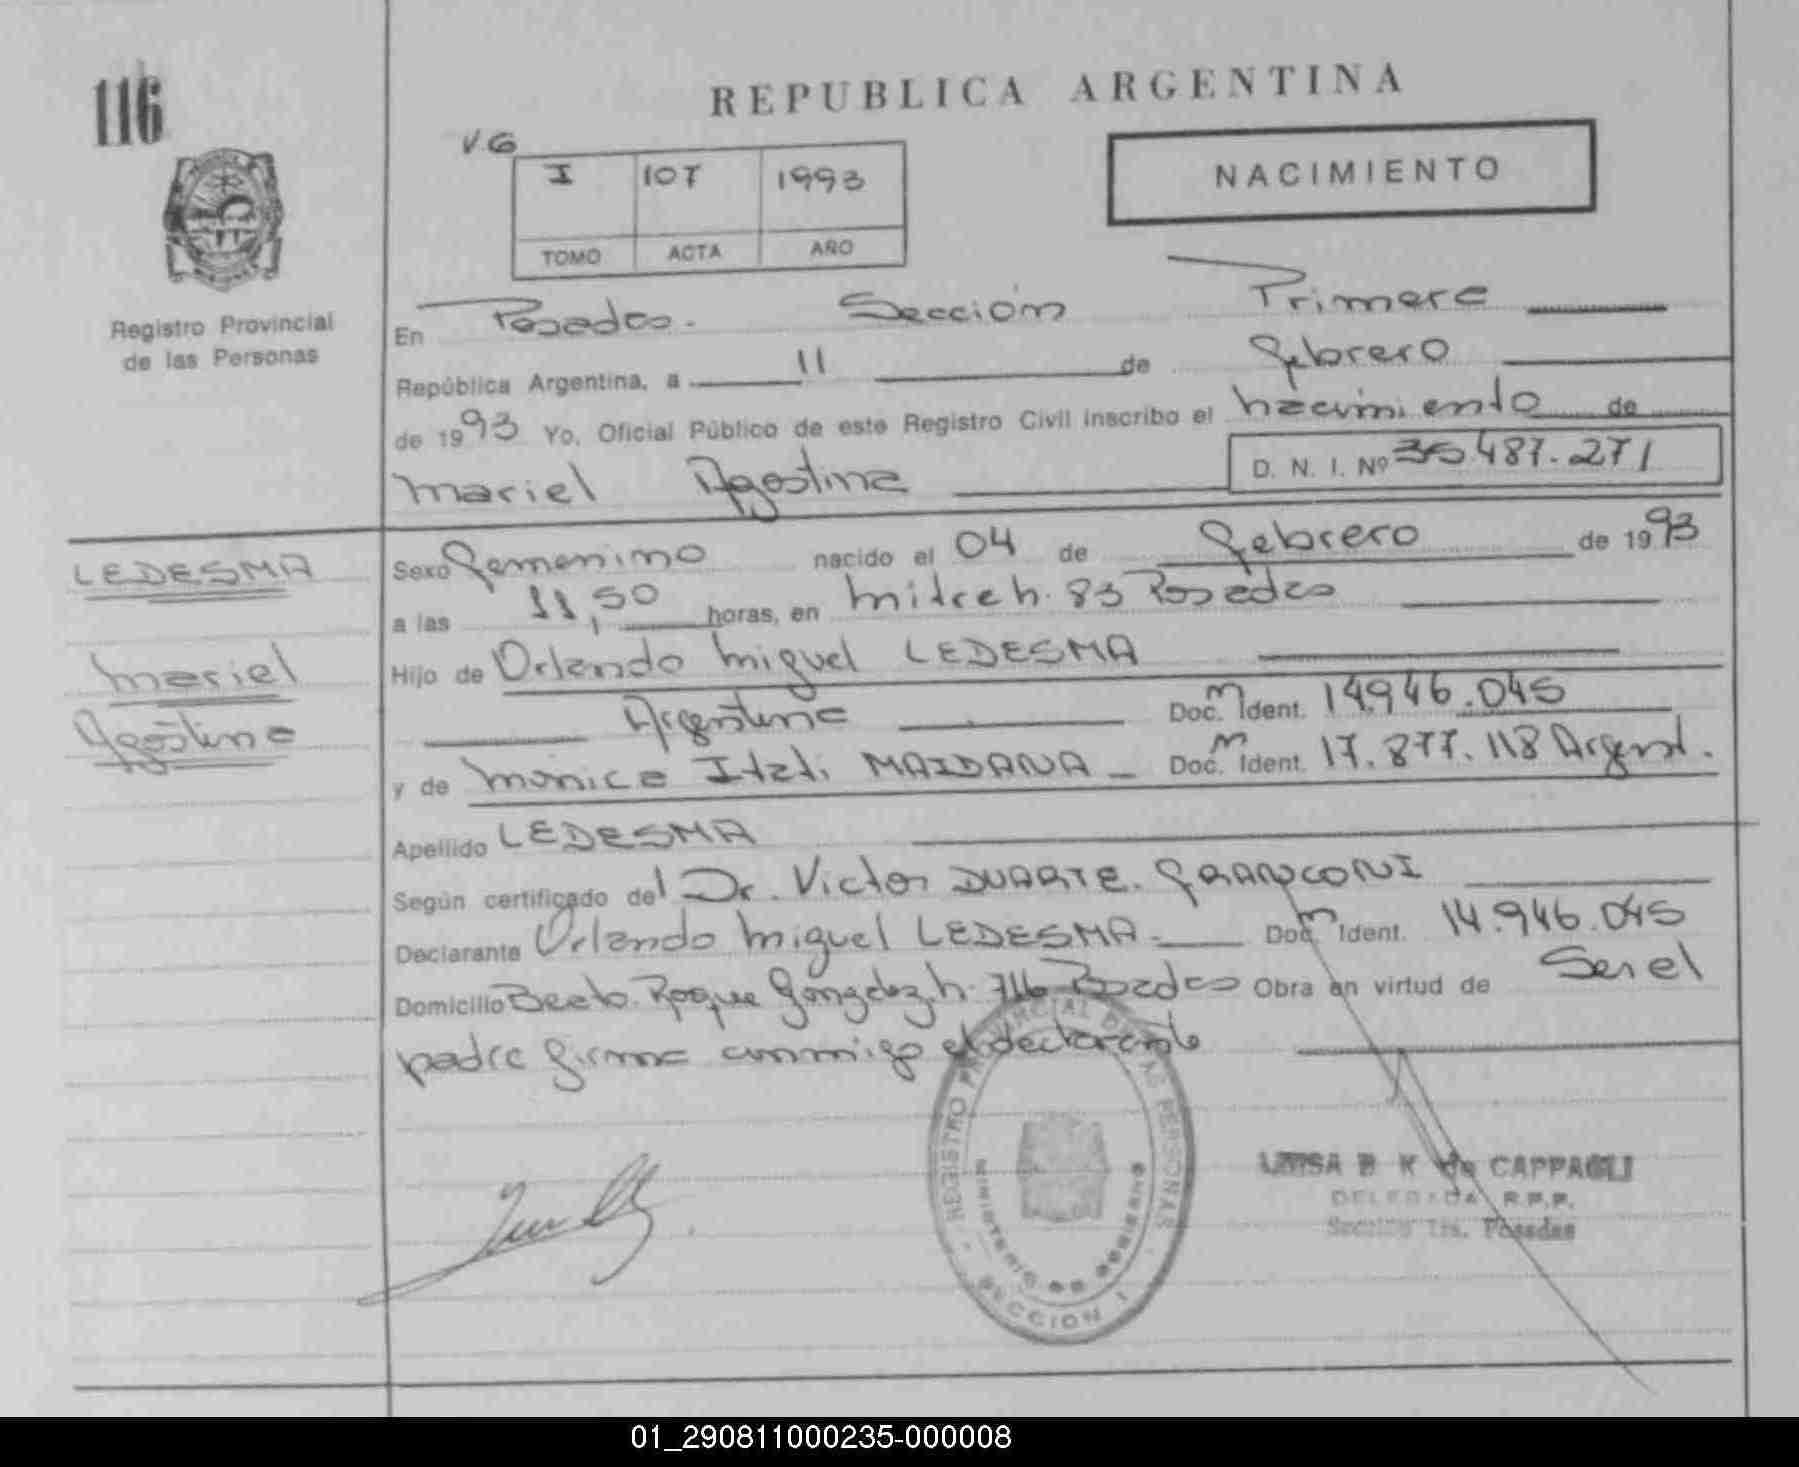 116
REPUBLICA ARGENTINA
V.G
I 107 1993
TOMO ACTA AÑO
NACIMIENTO
Registro Provincial
de las Personas
En Posadas. Sección Primera
República Argentina, a 11 de febrero
de 1993 Yo, Oficial Público de este Registro Civil inscribo el nacimiento de
D. N. I. Nº 35487.271
Mariel Agostina
LEDESMA
Mariel
Agostina
Sexo femenino nacido el 04 de febrero de 1993
a las 11,50 horas, en mitre h. 83 Posadas
Hijo de Orlando Miguel LEDESMA
Argentina Doc. m Ident. 14.946.045
y de Monica Itati MAIDANA Doc. m Ident. 17.877.118 Argent.
Apellido LEDESMA
Según certificado del Dr. Victor DUARTE. FRANCONI
Declarante Orlando Miguel LEDESMA Doc. m Ident. 14.946.045
Domicilio Beato Roque Gonzalez h. 716 Posadas Obra en virtud de Ser el
padre firma conmigo el declarante
REGISTRO PROVINCIAL DE LAS PERSONAS
MINISTERIO DE GOBIERNO
SECCION 1
LUISA B K de CAPPAGLI
DELEGADA R.P.P.
Sección 1ra. Posadas
01_290811000235-000008